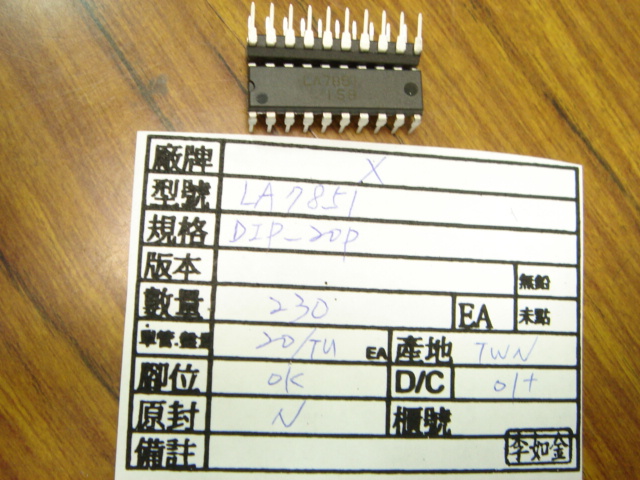 廠牌 X
型號 LA7851
規格 DIP-20P
版本 無鉛
數量 230 EA 未點
單管.盤裝 20/TU EA 產地 TWN
腳位 OK D/C 01+
原封 N 櫃號
備註 李如金